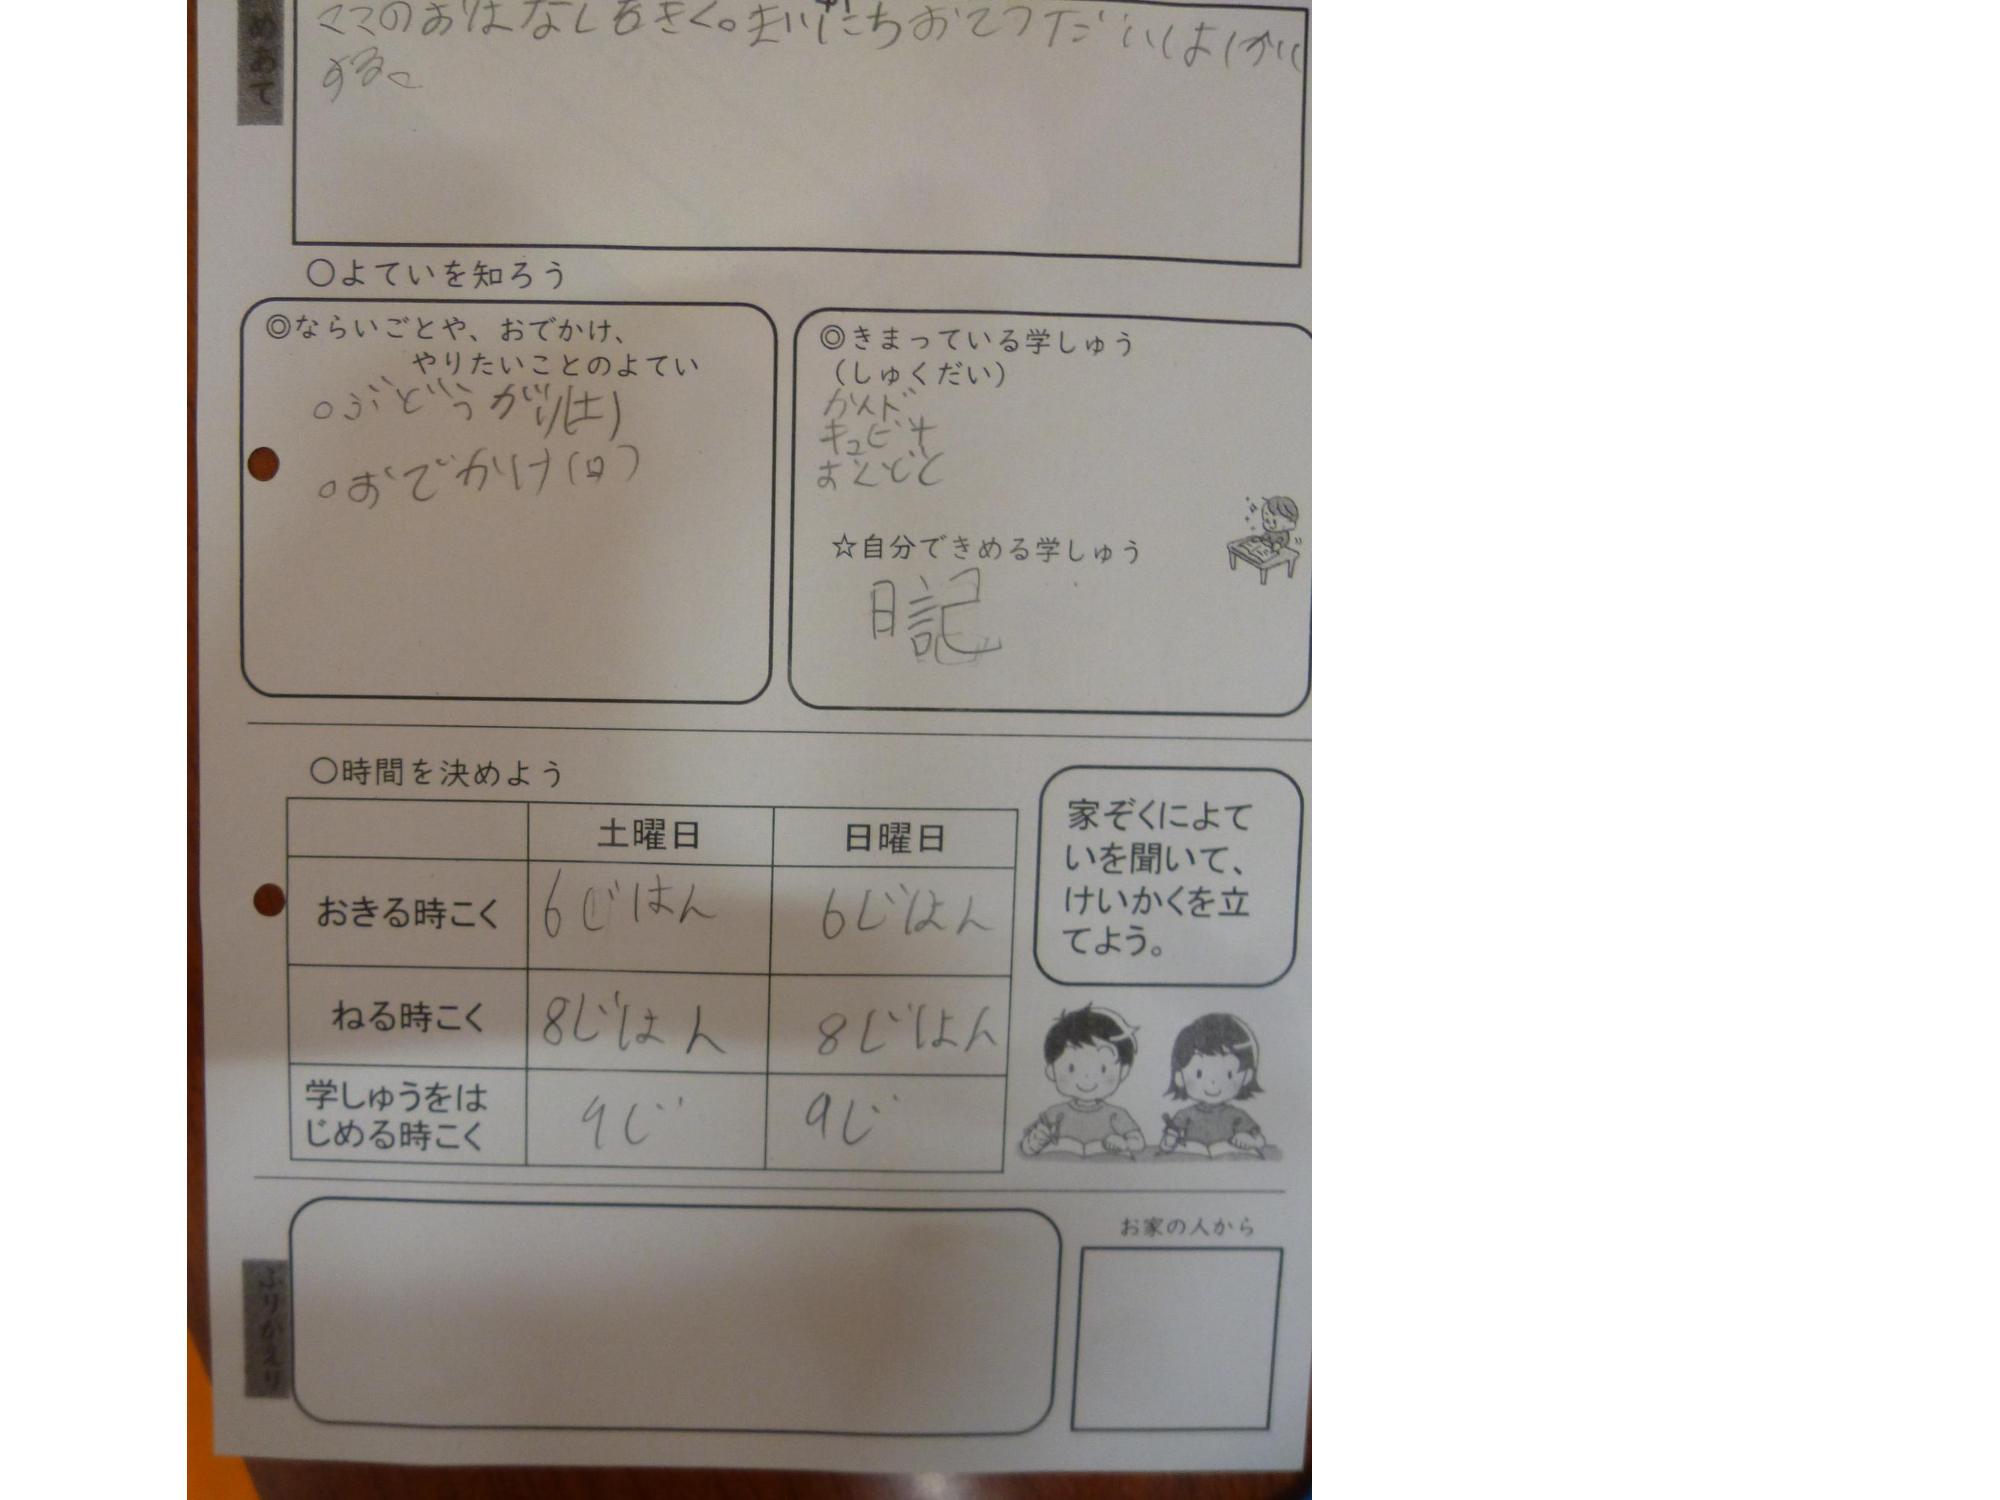 めあて
ママのおはなしをきく。まいにちおてつだい
する。
〇よていを知ろう
◎ならいごとや、おでかけ、
やりたいことのよてい
○ぶどうがり(土)
○おでかけ(日)
◎きまっている学しゅう
(しゅくだい)
かんド
キュビナ
おんどく
☆自分できめる学しゅう
日記
〇時間を決めよう
土曜日 日曜日
おきる時こく 6じはん 6じはん
ねる時こく 8じはん 8じはん
学しゅうをは
じめる時こく 9じ 9じ
家ぞくによて
いを聞いて、
けいかくを立
てよう。
ふりかえり
お家の人から